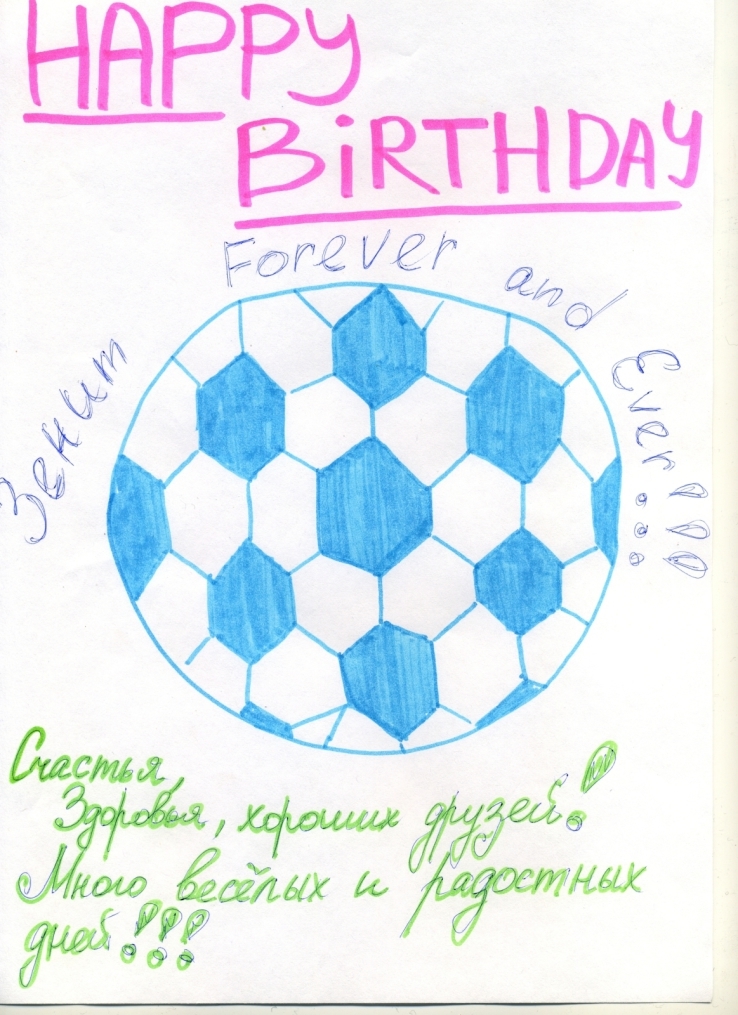 HAPPY
BiRTHDAY
Зенит Forever and Ever!!!
Счастья,
Здоровья, хороших друзей!
Много весёлых и радостных
дней!!!